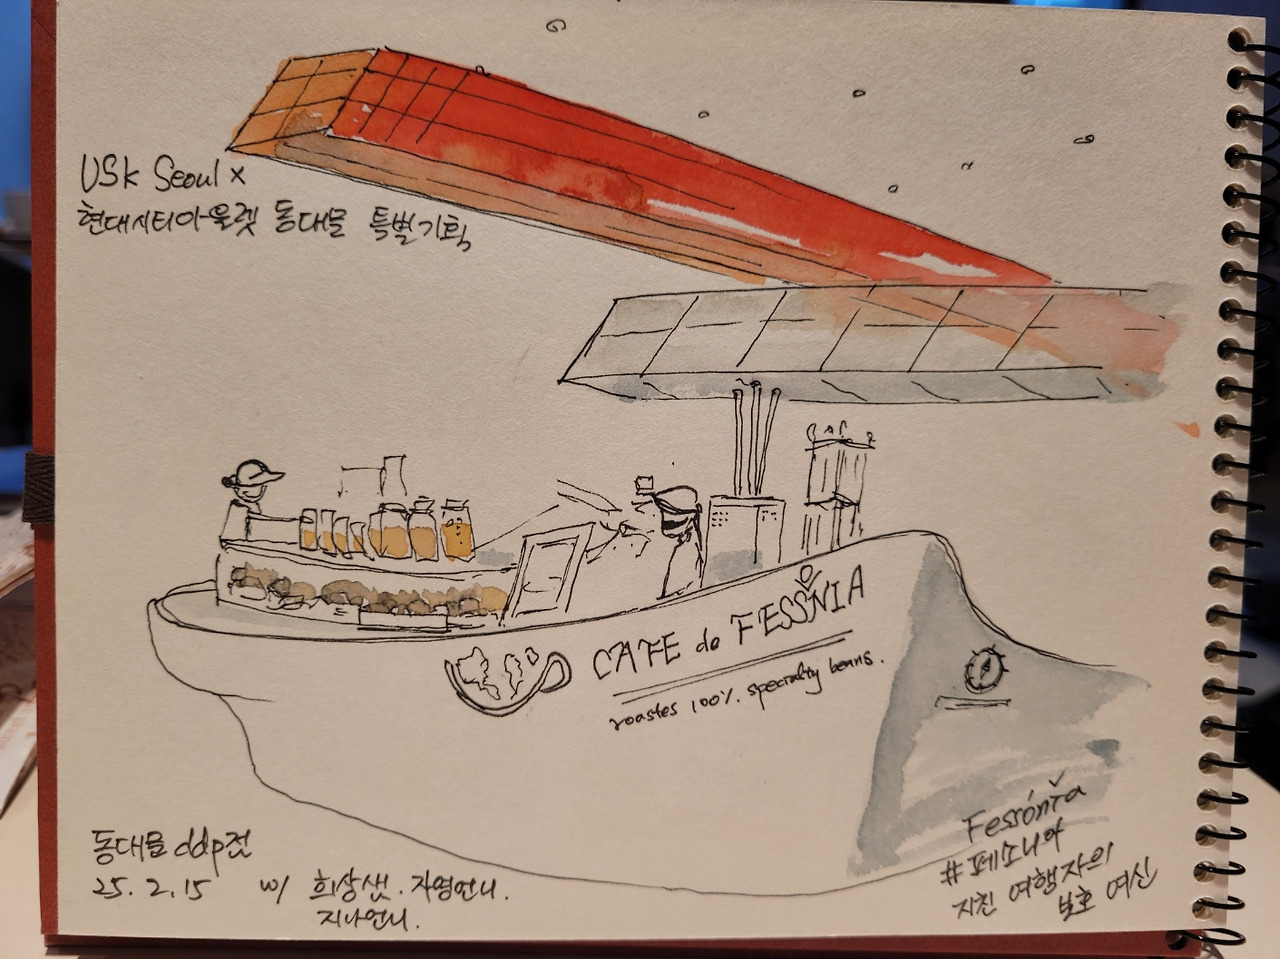 USk Seoul x
현대시티아울렛 동대문 특별기획
CAFE de FESSŎNIA
roastes 100% specialty beans.
Fessónĭa
#페소니아
지친 여행자의
보호 여신
동대문 ddp전
25. 2. 15 w/ 희상샘. 자영언니.
지나언니.